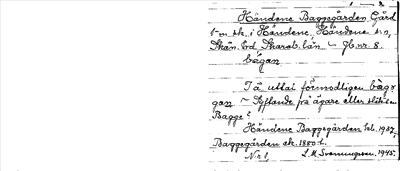 Händene Baggegården Gård
i Händene, Händene sn,
Skån. hd Skarab. län — Jb. nr. 8.
bágan
Tä uttal förmodligen
gan — Syftande på ägare eller
Bagge?
Händene Baggegården 1937,
Baggegården ek. 1880 t.
N:r 1 S. M. Svenningson. 1945.